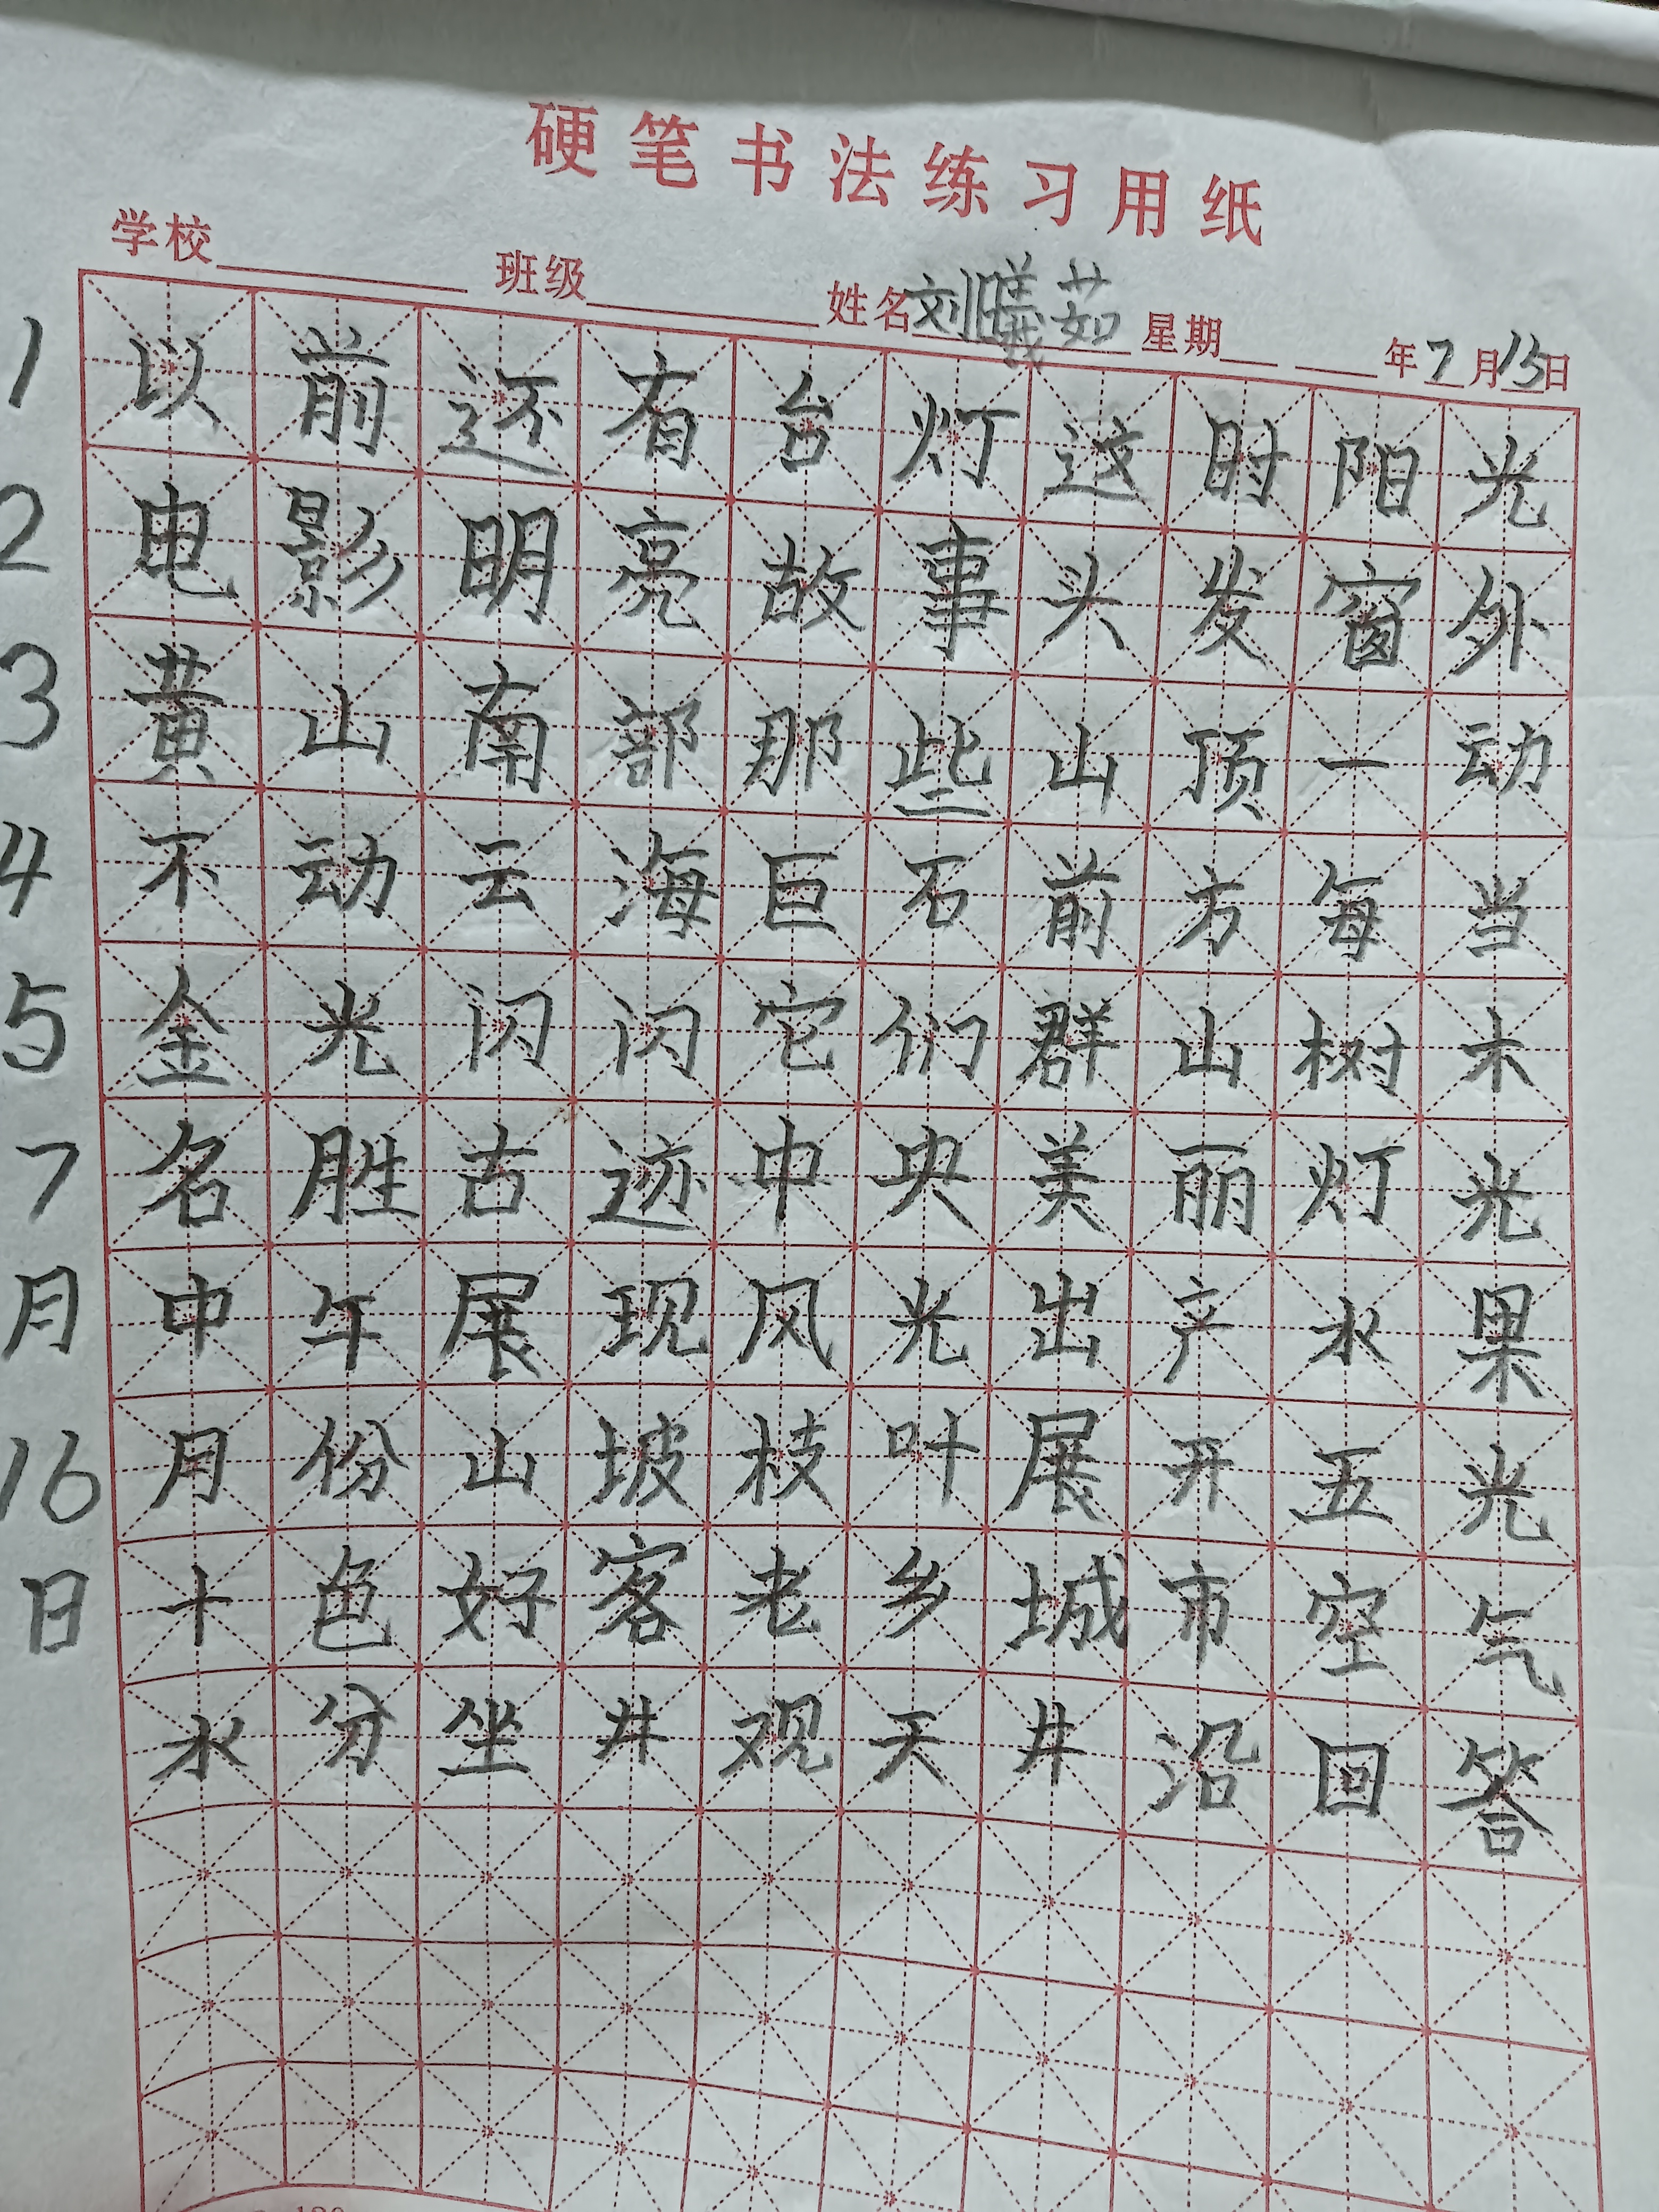 硬笔书法练习用纸
学校 班级 姓名刘曦茹 星期 年7月15日
1 以前还有台灯这时阳光
2 电影明亮故事头发窗外
3 黄山南部那些山顶一动
4 不动云海巨石前方每当
5 金光闪闪它们群山树木
7 名胜古迹中央美丽灯光
月 中午展现风光出产水果
16 月份山坡枝叶展开五光
日 十色好客老乡城市空气
水分坐井观天井沿回答